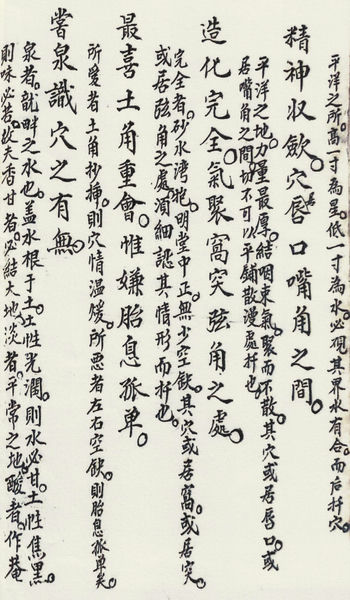 平洋之所高一寸為星低一寸為水必硯其界水有合而后扦穴
精神収歛穴居唇口嘴角之間
平洋之地力量最厚結咽束氣聚而不散其穴或居唇口或
居嘴角之間切不可以平鋪散漫處扦也
造化完全氣聚窩突弦角之處
完全者砂水灣抱明堂中正無少空缺其穴或居窩或居突
或居弦角之處須細認其情形而扦也
最喜土角重會惟嫌胎息孤单
所愛者土角抄揷則穴情温煖所悪者左右空缺則胎息孤单矣
嘗泉識穴之有無
泉者就畔之水也盖水根于土土性光潤則水必甘土性焦黒
則味必苦故夫香甘者必結大地淡者平常之地酸者作菴